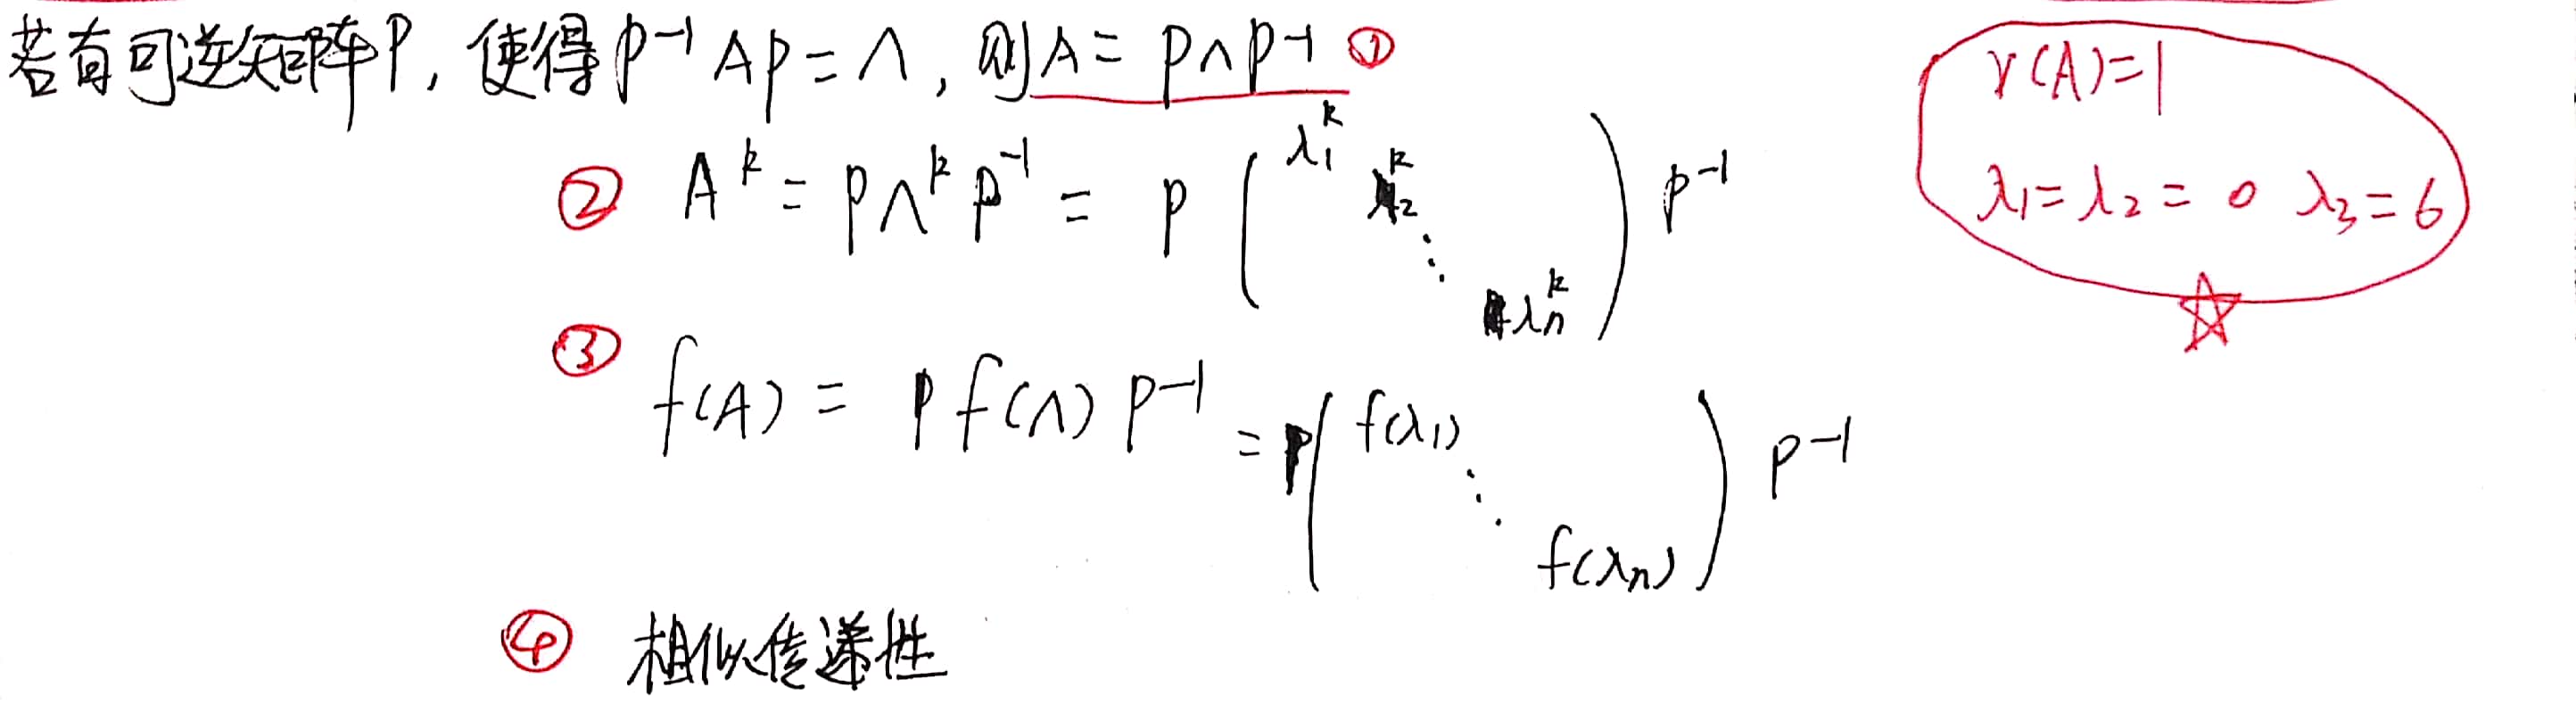 若有可逆矩阵P, 使得 P⁻¹AP = Λ, 则 A = PΛP⁻¹ ①
② Aᵏ = PΛᵏP⁻¹ = P ( λ₁ᵏ λ₂ᵏ ⋱ λₙᵏ ) P⁻¹
③ f(A) = P f(Λ) P⁻¹ = P ( f(λ₁) ⋱ f(λₙ) ) P⁻¹
④ 相似传递性
r(A)=1
λ₁=λ₂=0 λ₃=6